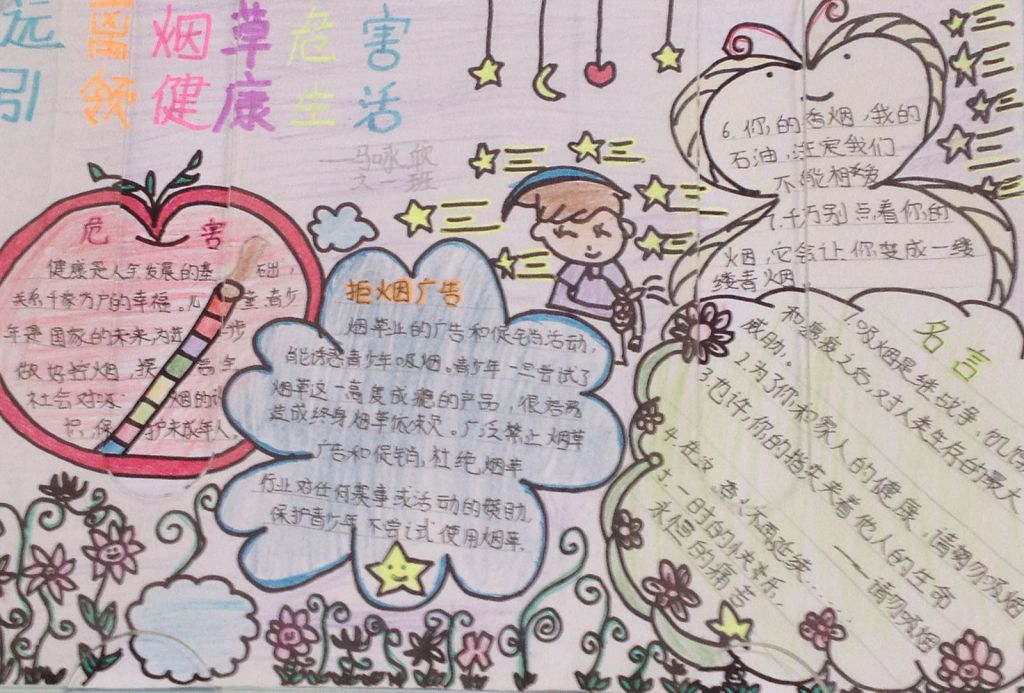 远离烟草危害
引领健康生活
文一班
危害
健康是人 发展的基 石出,
关系千家万户的幸福。儿 童 青少
年是国家的未来,为进 步
做好控烟 提 高 全
社会对 烟的 识
识,保 护未成年人。
拒烟广告
烟草业的广告和促销活动,
能诱惑青少年吸烟。青少年一旦尝试了
烟草这一高度成瘾的产品,很容易
造成终身烟草依 。广泛禁止烟草
广告和促销,杜绝烟草
行业对任何赛事或活动的赞助,
保护青少年不尝试使用烟草.
6.你的香烟,我的
石油,注定我们
不能相爱
7.千万别点,看你的
烟,它会让你变成一缕
缕青烟
名言
1.吸烟是继战争,饥饿
和瘟疫之后,对人类生存的最大
威胁。
2.为了你和家人的健康,请勿吸烟
3.也许,你的指尖夹着他人的生命
——请勿吸烟
4.在这 不再延续……
5.一时的快乐,
永恒的痛苦